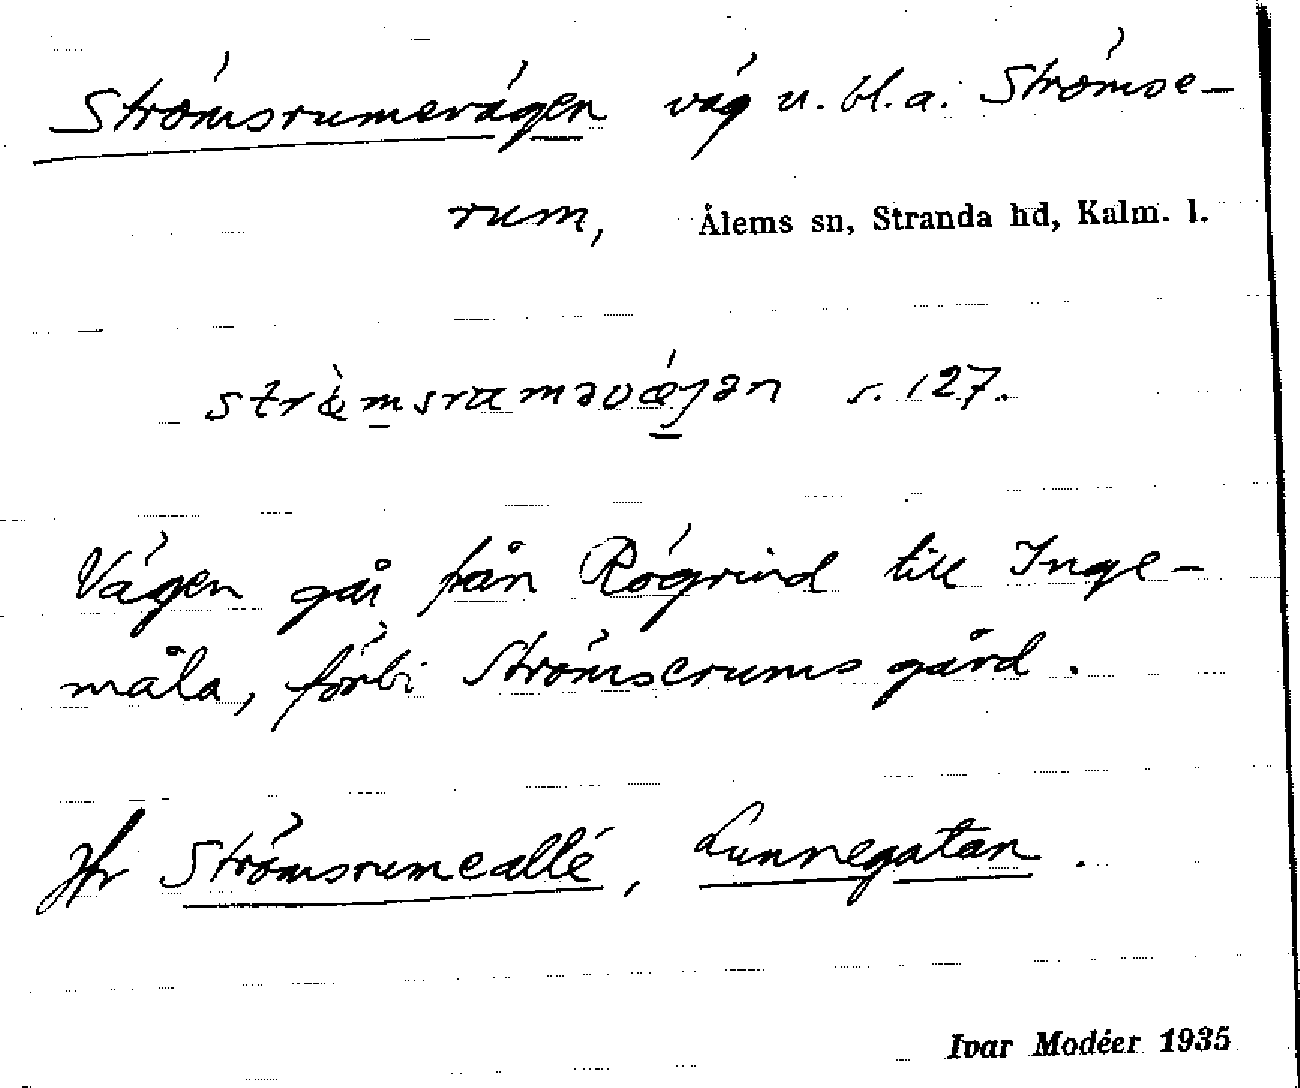 Strömsrumevägen väg u. bl.a. Strömse-
rum, Ålems sn, Stranda hd, Kalm. l.
s. 127.
Vägen går från Rögrind till Inge-
måla, förbi Strömserums gård.
Jfr Strömsrumeallé, Lunnegatan.
Ivar Modéer 1935